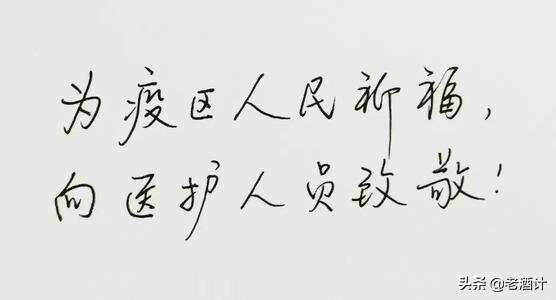 为疫区人民祈福，
向医护人员致敬！
头条 @老酒计